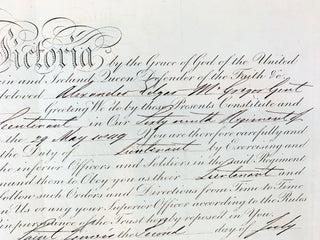 Victoria by the Grace of God of the United
in and Ireland Queen Defender of the Faith &c
beloved Alexander Edgar McGregor Gent
Greeting We do by these Presents Constitute and
Lieutenant in Our Sixty ninth Regiment of
the 29 May 1849 You are therefore carefully and
the Duty of Lieutenant by Exercising and
the inferior Officers and Soldiers in the said Regiment
mand them to Obey you as their Lieutenant and
follow such Orders and Directions from Time to Time
n Us or any your Superior Officer according to the Rules
in pursuance of the Trust hereby reposed in You.
Saint James's the Second day of July